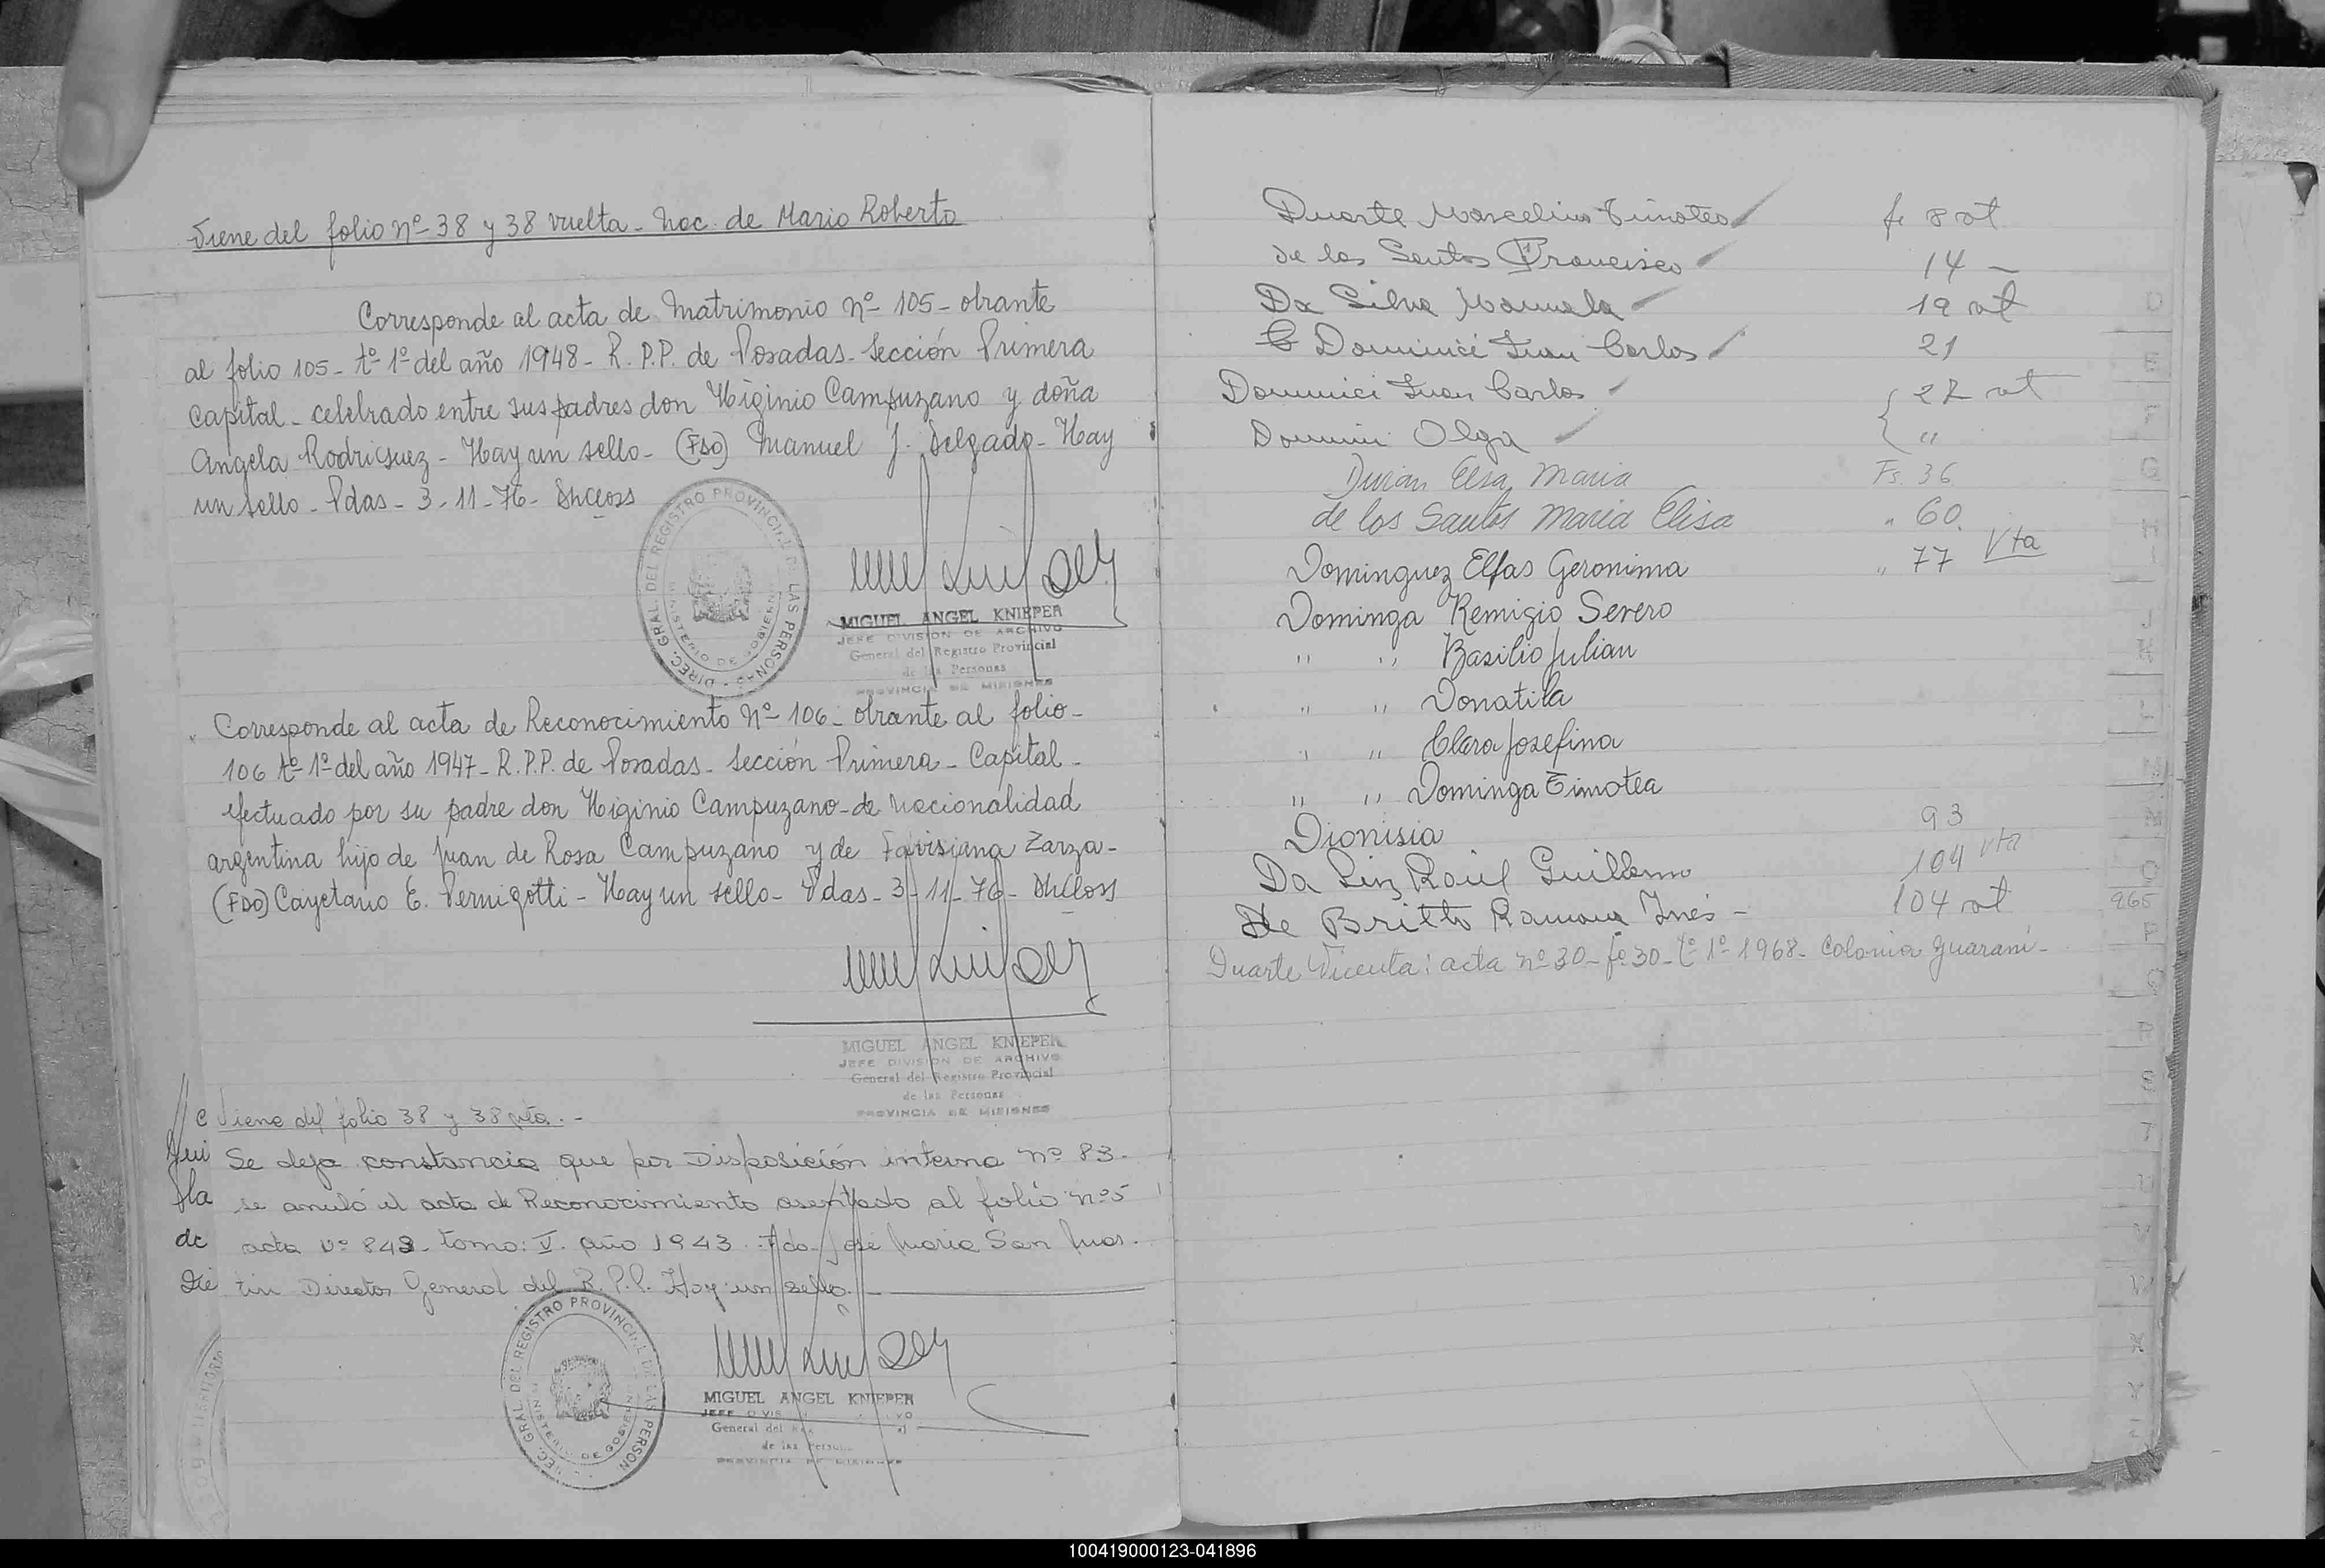 Viene del folio nº 38 y 38 vuelta - Nac. de Mario Roberto
Corresponde al acta de Matrimonio nº 105 - obrante
al folio 105 - tº 1º del año 1948 - R.P.P. de Posadas - Sección Primera
Capital - celebrado entre sus padres don Higinio Campuzano y doña
Angela Rodriguez - Hay un sello - (FDO) Manuel J. Delgado - Hay
un sello - Pdas - 3 - 11 - 76 -
DIREC. GRAL. DEL REGISTRO PROVINCIAL DE LAS PERSONAS
MINISTERIO DE GOBIERNO
MIGUEL ANGEL KNIEPER
JEFE DIVISION DE ARCHIVO
General del Registro Provincial
de las Personas
PROVINCIA DE MISIONES
Corresponde al acta de Reconocimiento Nº 106 - obrante al folio -
106 tº 1º del año 1947 - R.P.P. de Posadas - Sección Primera - Capital -
efectuado por su padre don Higinio Campuzano - de nacionalidad
argentina hijo de Juan de Rosa Campuzano y de Zarza -
(FDO) Cayetano E. Pernigotti - Hay un sello - Pdas - 3 - 11 - 76 -
MIGUEL ANGEL KNIEPER
JEFE DIVISION DE ARCHIVO
General del Registro Provincial
de las Personas
PROVINCIA DE MISIONES
Viene del folio 38 y 38 vta. -
Se deja constancia que por Disposición interna nº 83 -
se anuló el acta de Reconocimiento asentado al folio nº 5
acta nº 848 - tomo: V. año 1943 - Fdo - José Maria San Mar -
tin Director General del R.P.P. Hay un sello.
de
DIREC. GRAL. DEL REGISTRO PROVINCIAL DE LAS PERSON
MINISTERIO DE GOBIERN
MIGUEL ANGEL KNIEPER
General del
de las
PROVINCIA DE MISIONES
Duarte Marcelino Timoteo fº 8 vt
de los Santos Francisco 14 -
Da Silva Manuela 19 vt
Dominici Juan Carlos 21
Dominici Juan Carlos 22 vt
Olga "
Elsa Maria Fs. 36
de los Santos Maria Elisa " 60.
Dominguez Elfas Geronima " 77 Vta
Dominga Remigio Severo
" " Basilio Julian
" " Donatila
" " Clara Josefina
" " Dominga Timotea
Dionisia 93
Da Raúl Guillermo 104 vta
De Britto Ramona Inés - 104 vt
Duarte Vicenta: acta nº 30 - fº 30 - tº 1º 1968 - Colonia Guaraní -
D
E
F
G
H
I
J
K
L
M
N
O
P
Q
R
S
T
U
V
W
X
100419000123-041896